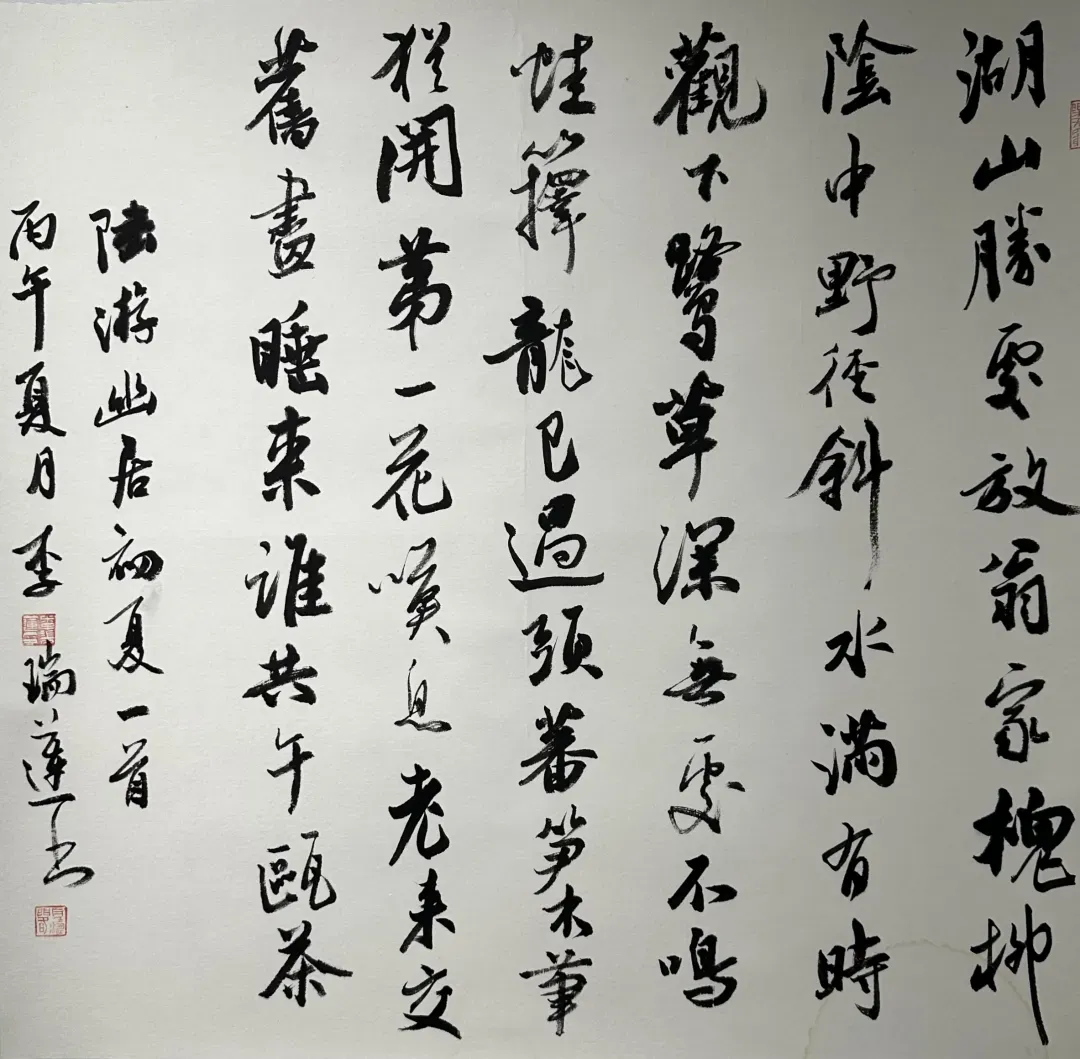 湖山勝處放翁家槐柳
陰中野徑斜水滿有時
觀下鷺草深無處不鳴
蛙籜龍已過頭番笋木筆
猶開第一花嘆息老來交
舊盡睡來誰共午甌茶
陸游幽居初夏一首
丙午夏月李瑞蓮書